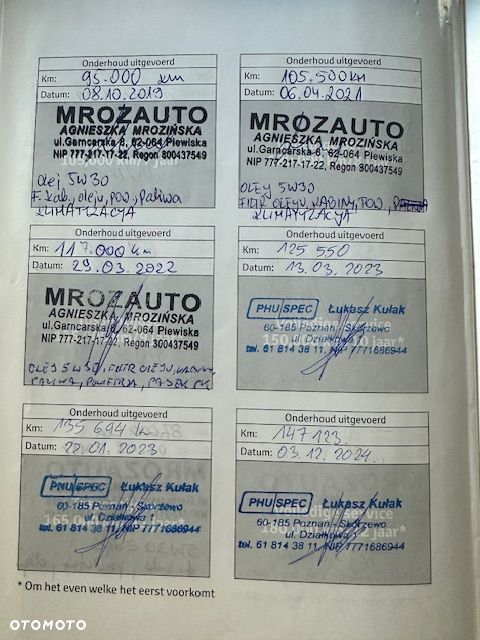 Onderhoud uitgevoerd
Km: 95.000 km
Datum: 08.10.2019
MROZAUTO
AGNIESZKA MROZIŃSKA
ul.Garncarska 8, 62-064 Plewiska
NIP 777-217-17-22, Regon 300437549
Olej 5W30
F. kab, oleju, pow, paliwa
KLIMATYZACJA
Onderhoud uitgevoerd
Km: 105.500km
Datum: 06.04.2021
MROZAUTO
AGNIESZKA MROZIŃSKA
ul.Garncarska 8, 62-064 Plewiska
NIP 777-217-17-22, Regon 300437549
OLEJ 5W30
FILTR OLEJU, KABINY, POW,
KLIMATYZACJA
Onderhoud uitgevoerd
Km: 117.000 km
Datum: 29.03.2022
MROZAUTO
AGNIESZKA MROZIŃSKA
ul.Garncarska 8, 62-064 Plewiska
NIP 777-217-17-22, Regon 300437549
OLEJ 5W30, FILTR OLEJU, KABINY
PALIWA, POWIETRZA, PASEK PK
Onderhoud uitgevoerd
Km: 125 550
Datum: 13.03.2023
PHU SPEC Łukasz Kułak
60-185 Poznań - Skórzewo
tel. 61 814 38 11, NIP 7771686944
Onderhoud uitgevoerd
Km: 135 694 k
Datum: 22.01.2023
PHU SPEC Łukasz Kułak
60-185 Poznań - Skórzewo
ul. Działkowa 1
tel. 61 814 38 11, NIP 7771686944
Onderhoud uitgevoerd
Km: 147 123,
Datum: 03.12.2024.
PHU SPEC Łukasz Kułak
60-185 Poznań - Skórzewo
ul. Działkowa
tel. 61 814 38 11, NIP 7771686944
* Om het even welke het eerst voorkomt
OTOMOTO